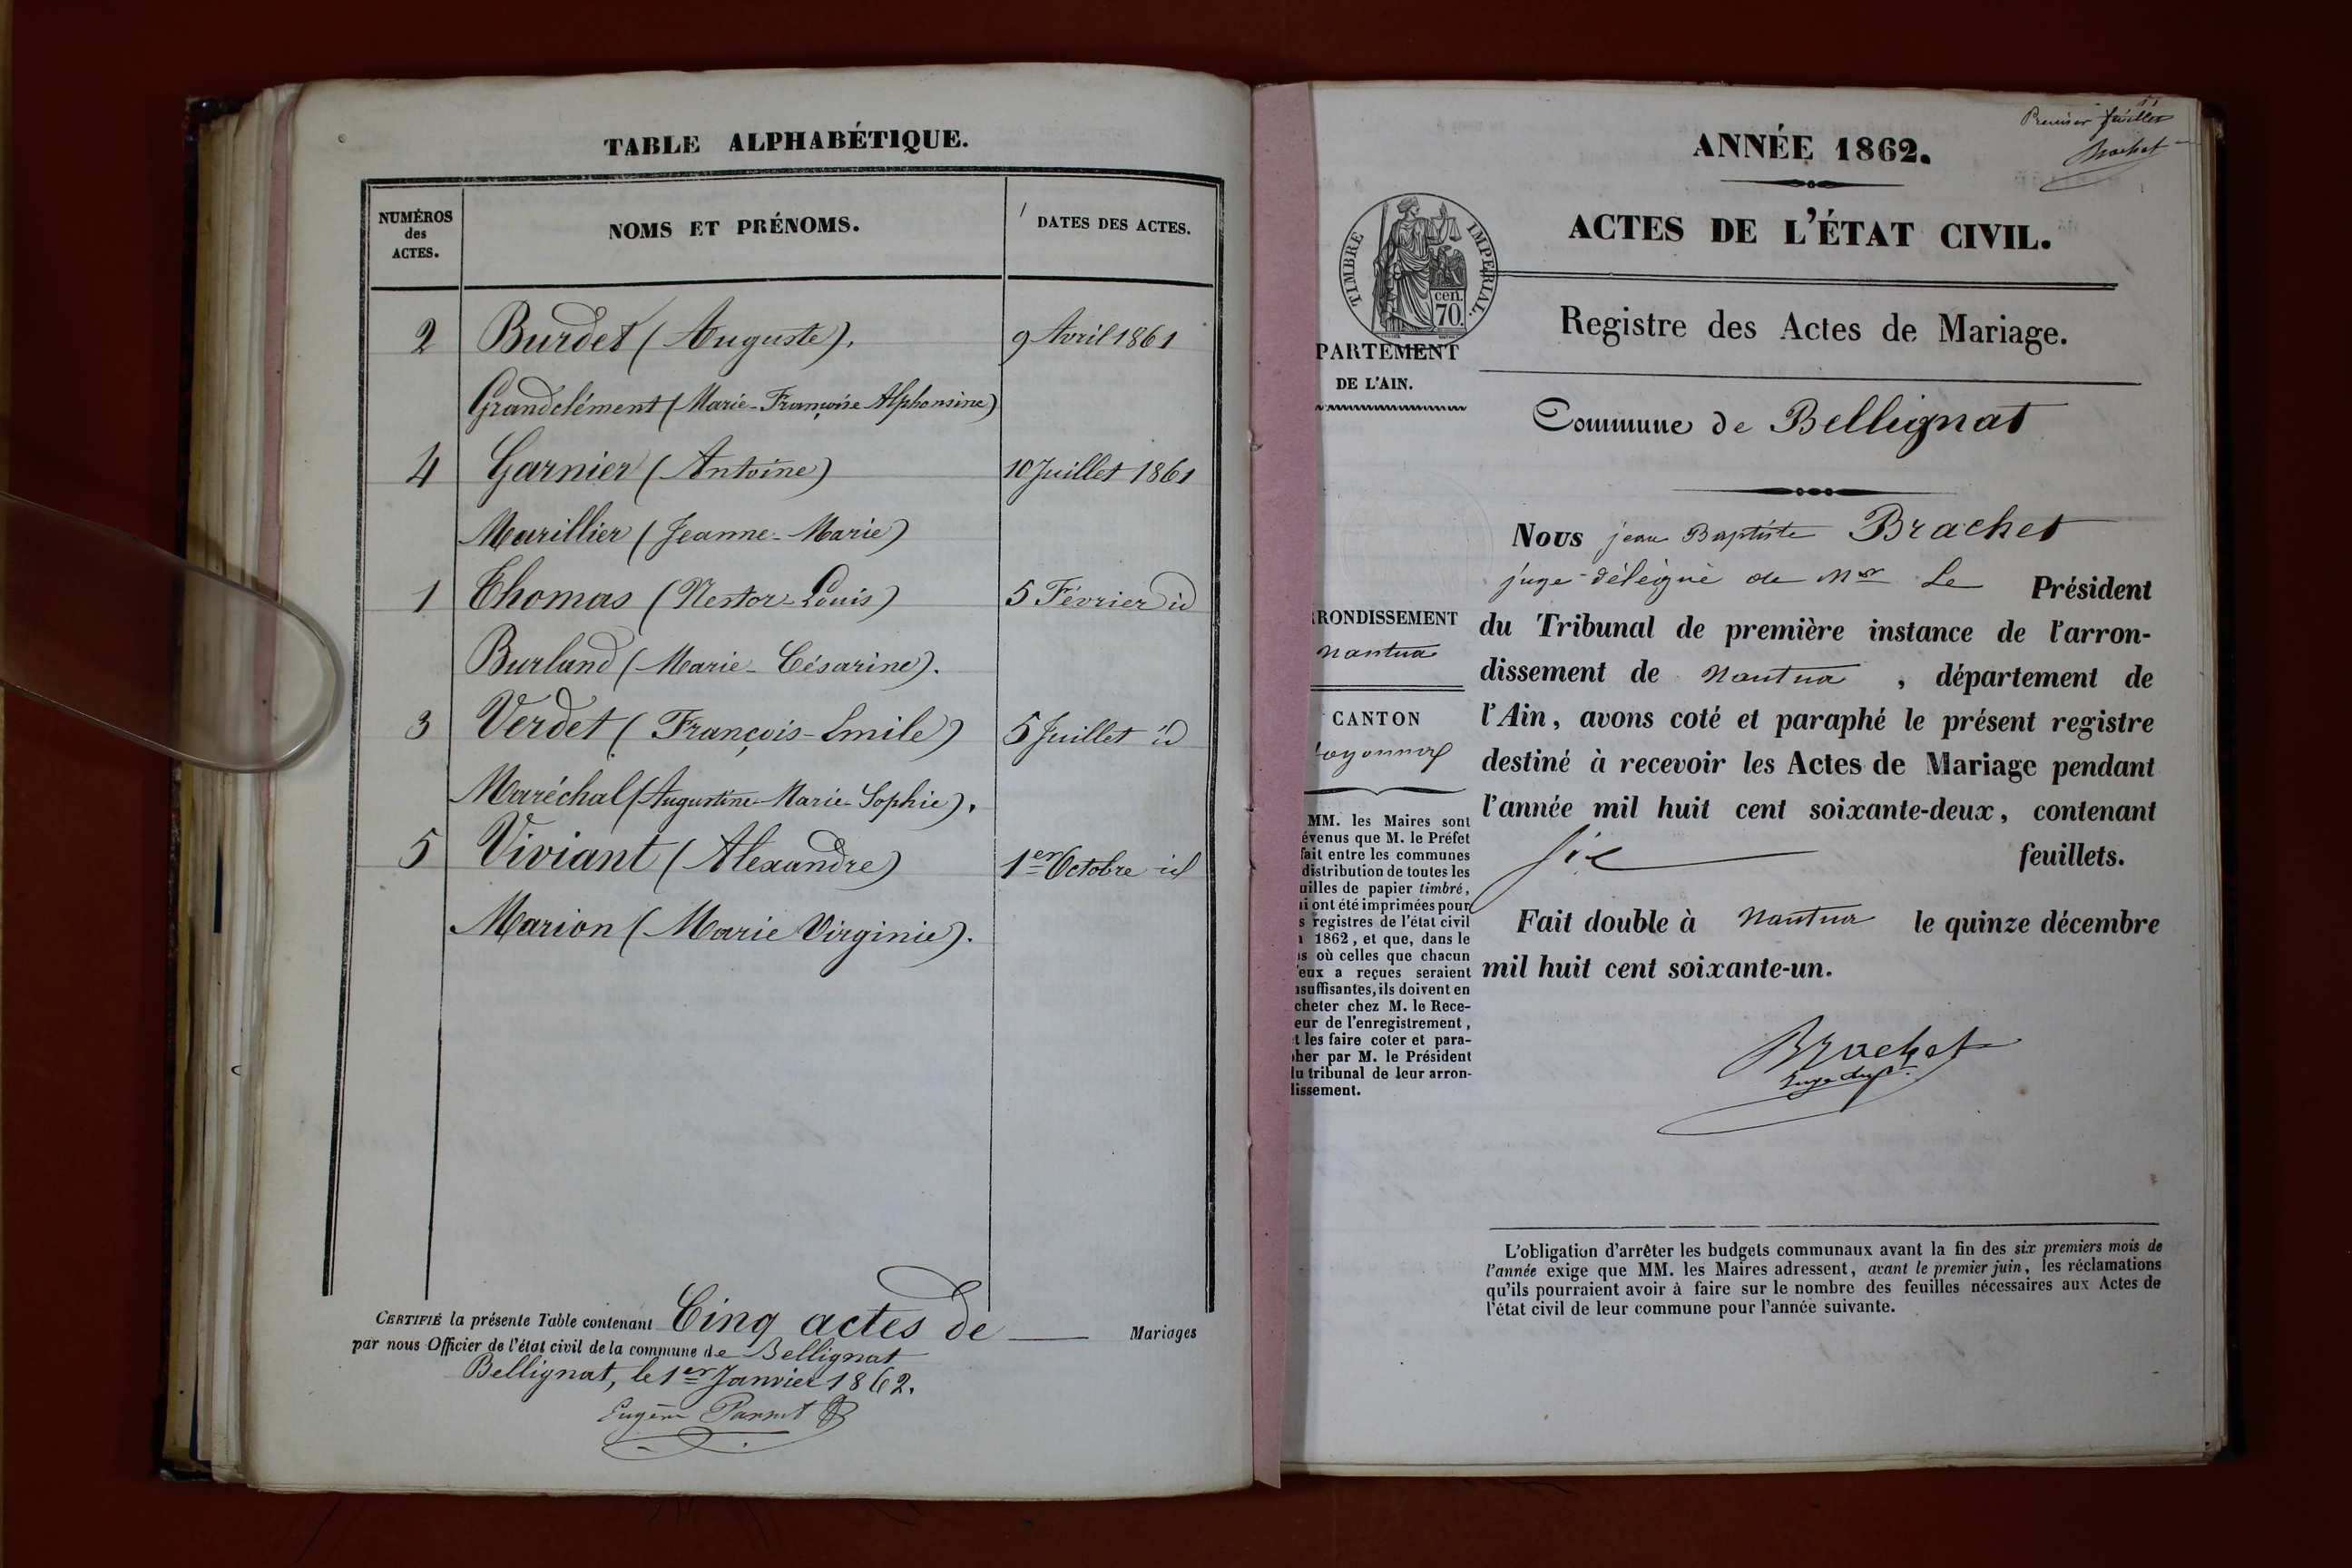 TABLE ALPHABÉTIQUE.
NUMÉROS
des
ACTES.
NOMS ET PRÉNOMS.
DATES DES ACTES.
2 Burdet (Auguste). 9 Avril 1861
Grandclément (Marie-Françoise Alphonsine)
4 Garnier (Antoine) 10 Juillet 1861
Marillier (Jeanne-Marie)
1 Thomas (Nestor-Louis) 5 Février id
Burland (Marie-Césarine).
3 Verdet (François-Emile) 5 Juillet id
Maréchal (Augustine-Marie-Sophie).
5 Viviant (Alexandre) 1er Octobre id
Marion (Marie Virginie).
CERTIFIÉ la présente Table contenant Cinq actes de — Mariages
par nous Officier de l'état civil de la commune de Bellignat
Bellignat, le 1er Janvier 1862.
Eugène
Premier feuillet
Brachet
ANNÉE 1862.
ACTES DE L'ÉTAT CIVIL.
TIMBRE IMPÉRIAL.
cen.
70.
Registre des Actes de Mariage.
PARTEMENT
DE L'AIN.
Commune de Bellignat
Nous jean Baptiste Brachet
juge-délégué de Mr Le Président
du Tribunal de première instance de l'arron-
dissement de Nantua, département de
l'Ain, avons coté et paraphé le présent registre
destiné à recevoir les Actes de Mariage pendant
l'année mil huit cent soixante-deux, contenant
six feuillets.
Fait double à Nantua le quinze décembre
mil huit cent soixante-un.
Brachet
RONDISSEMENT
Nantua
CANTON
oyonnax
MM. les Maires sont
évenus que M. le Préfet
fait entre les communes
distribution de toutes les
uilles de papier timbré,
i ont été imprimées pour
s registres de l'état civil
1862, et que, dans le
s où celles que chacun
eux a reçues seraient
suffisantes, ils doivent en
cheter chez M. le Rece-
eur de l'enregistrement,
t les faire coter et para-
her par M. le Président
du tribunal de leur arron-
dissement.
L'obligation d'arrêter les budgets communaux avant la fin des six premiers mois de
l'année exige que MM. les Maires adressent, avant le premier juin, les réclamations
qu'ils pourraient avoir à faire sur le nombre des feuilles nécessaires aux Actes de
l'état civil de leur commune pour l'année suivante.